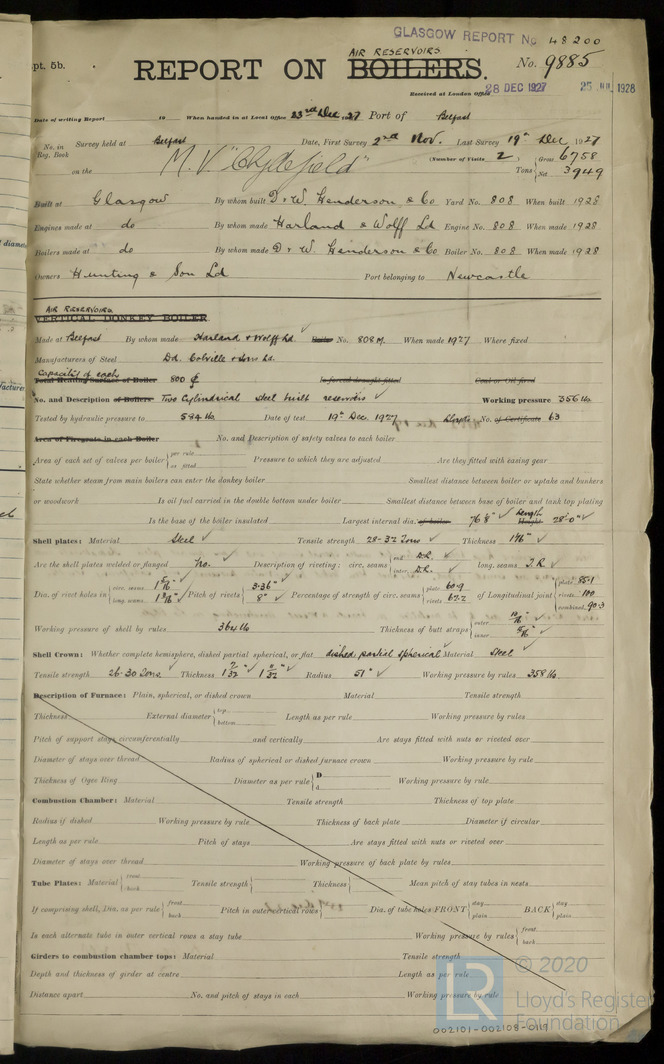 GLASGOW REPORT No 48200
AIR RESERVOIRS
pt. 5b. REPORT ON BOILERS. No. 9885
Received at London Office 28 DEC 1927 25 JUL 1928
Date of writing Report 19 When handed in at Local Office 23rd Dec 1927 Port of Belfast
No. in Reg. Book Survey held at Belfast Date, First Survey 2nd Nov. Last Survey 19th Dec 1927
on the M.V. "Clydefield" (Number of Visits 2) Tons Gross 6758 Net 3949
Built at Glasgow By whom built D. & W. Henderson & Co Yard No. 808 When built 1928
Engines made at do By whom made Harland & Wolff Ld Engine No. 808 When made 1928
Boilers made at do By whom made D. & W. Henderson & Co Boiler No. 808 When made 1928
Owners Hunting & Son Ld Port belonging to Newcastle
AIR RESERVOIRS
VERTICAL DONKEY BOILER
Made at Belfast By whom made Harland & Wolff Ld. Boiler No. 808M. When made 1927 Where fixed
Manufacturers of Steel Dd. Colville & Sons Ld.
Capacity of each
Total Heating Surface of Boiler 800 Is forced draught fitted Coal or Oil fired
No. and Description of Boilers Two Cylindrical steel built reservoirs Working pressure 356 lbs
Tested by hydraulic pressure to 584 lbs Date of test 19th Dec. 1927 Lloyds No. of Certificate 63
Area of Firegrate in each Boiler No. and Description of safety valves to each boiler
Area of each set of valves per boiler per rule as fitted Pressure to which they are adjusted Are they fitted with easing gear
State whether steam from main boilers can enter the donkey boiler Smallest distance between boiler or uptake and bunkers
or woodwork Is oil fuel carried in the double bottom under boiler Smallest distance between base of boiler and tank top plating
Is the base of the boiler insulated Largest internal dia. of boiler 76⅛" Length Height 28'-0"
Shell plates: Material Steel Tensile strength 28-32 Tons Thickness
Are the shell plates welded or flanged No. Description of riveting: circ. seams end D.R. inter. D.R. long. seams T.R
Dia. of rivet holes in circ. seams long. seams Pitch of rivets 3.36" 8" Percentage of strength of circ. seams plate 60.9 rivets 67.2 of Longitudinal joint plate 85.1 rivets 100 combined 90.3
Working pressure of shell by rules 364 lbs Thickness of butt straps outer inner
Shell Crown: Whether complete hemisphere, dished partial spherical, or flat dished partial spherical Material Steel
Tensile strength 26-30 Tons Thickness 1 7/32" Radius 51" Working pressure by rules 358 lbs
Description of Furnace: Plain, spherical, or dished crown Material Tensile strength
Thickness External diameter top bottom Length as per rule Working pressure by rules
Pitch of support stays circumferentially and vertically Are stays fitted with nuts or riveted over
Diameter of stays over thread Radius of spherical or dished furnace crown Working pressure by rule
Thickness of Ogee Ring Diameter as per rule D d Working pressure by rule
Combustion Chamber: Material Tensile strength Thickness of top plate
Radius if dished Working pressure by rule Thickness of back plate Diameter if circular
Length as per rule Pitch of stays Are stays fitted with nuts or riveted over
Diameter of stays over thread Working pressure of back plate by rules
Tube Plates: Material front back Tensile strength Thickness Mean pitch of stay tubes in nests
If comprising shell, Dia. as per rule front back Pitch in outer vertical rows Dia. of tube holes FRONT stay plain BACK stay plain
Is each alternate tube in outer vertical rows a stay tube Working pressure by rules front back
Girders to combustion chamber tops: Material Tensile strength
Depth and thickness of girder at centre Length as per rule
Distance apart No. and pitch of stays in each Working pressure by rule
LR © 2020
Lloyd's Register
Foundation
002101-002108-0119